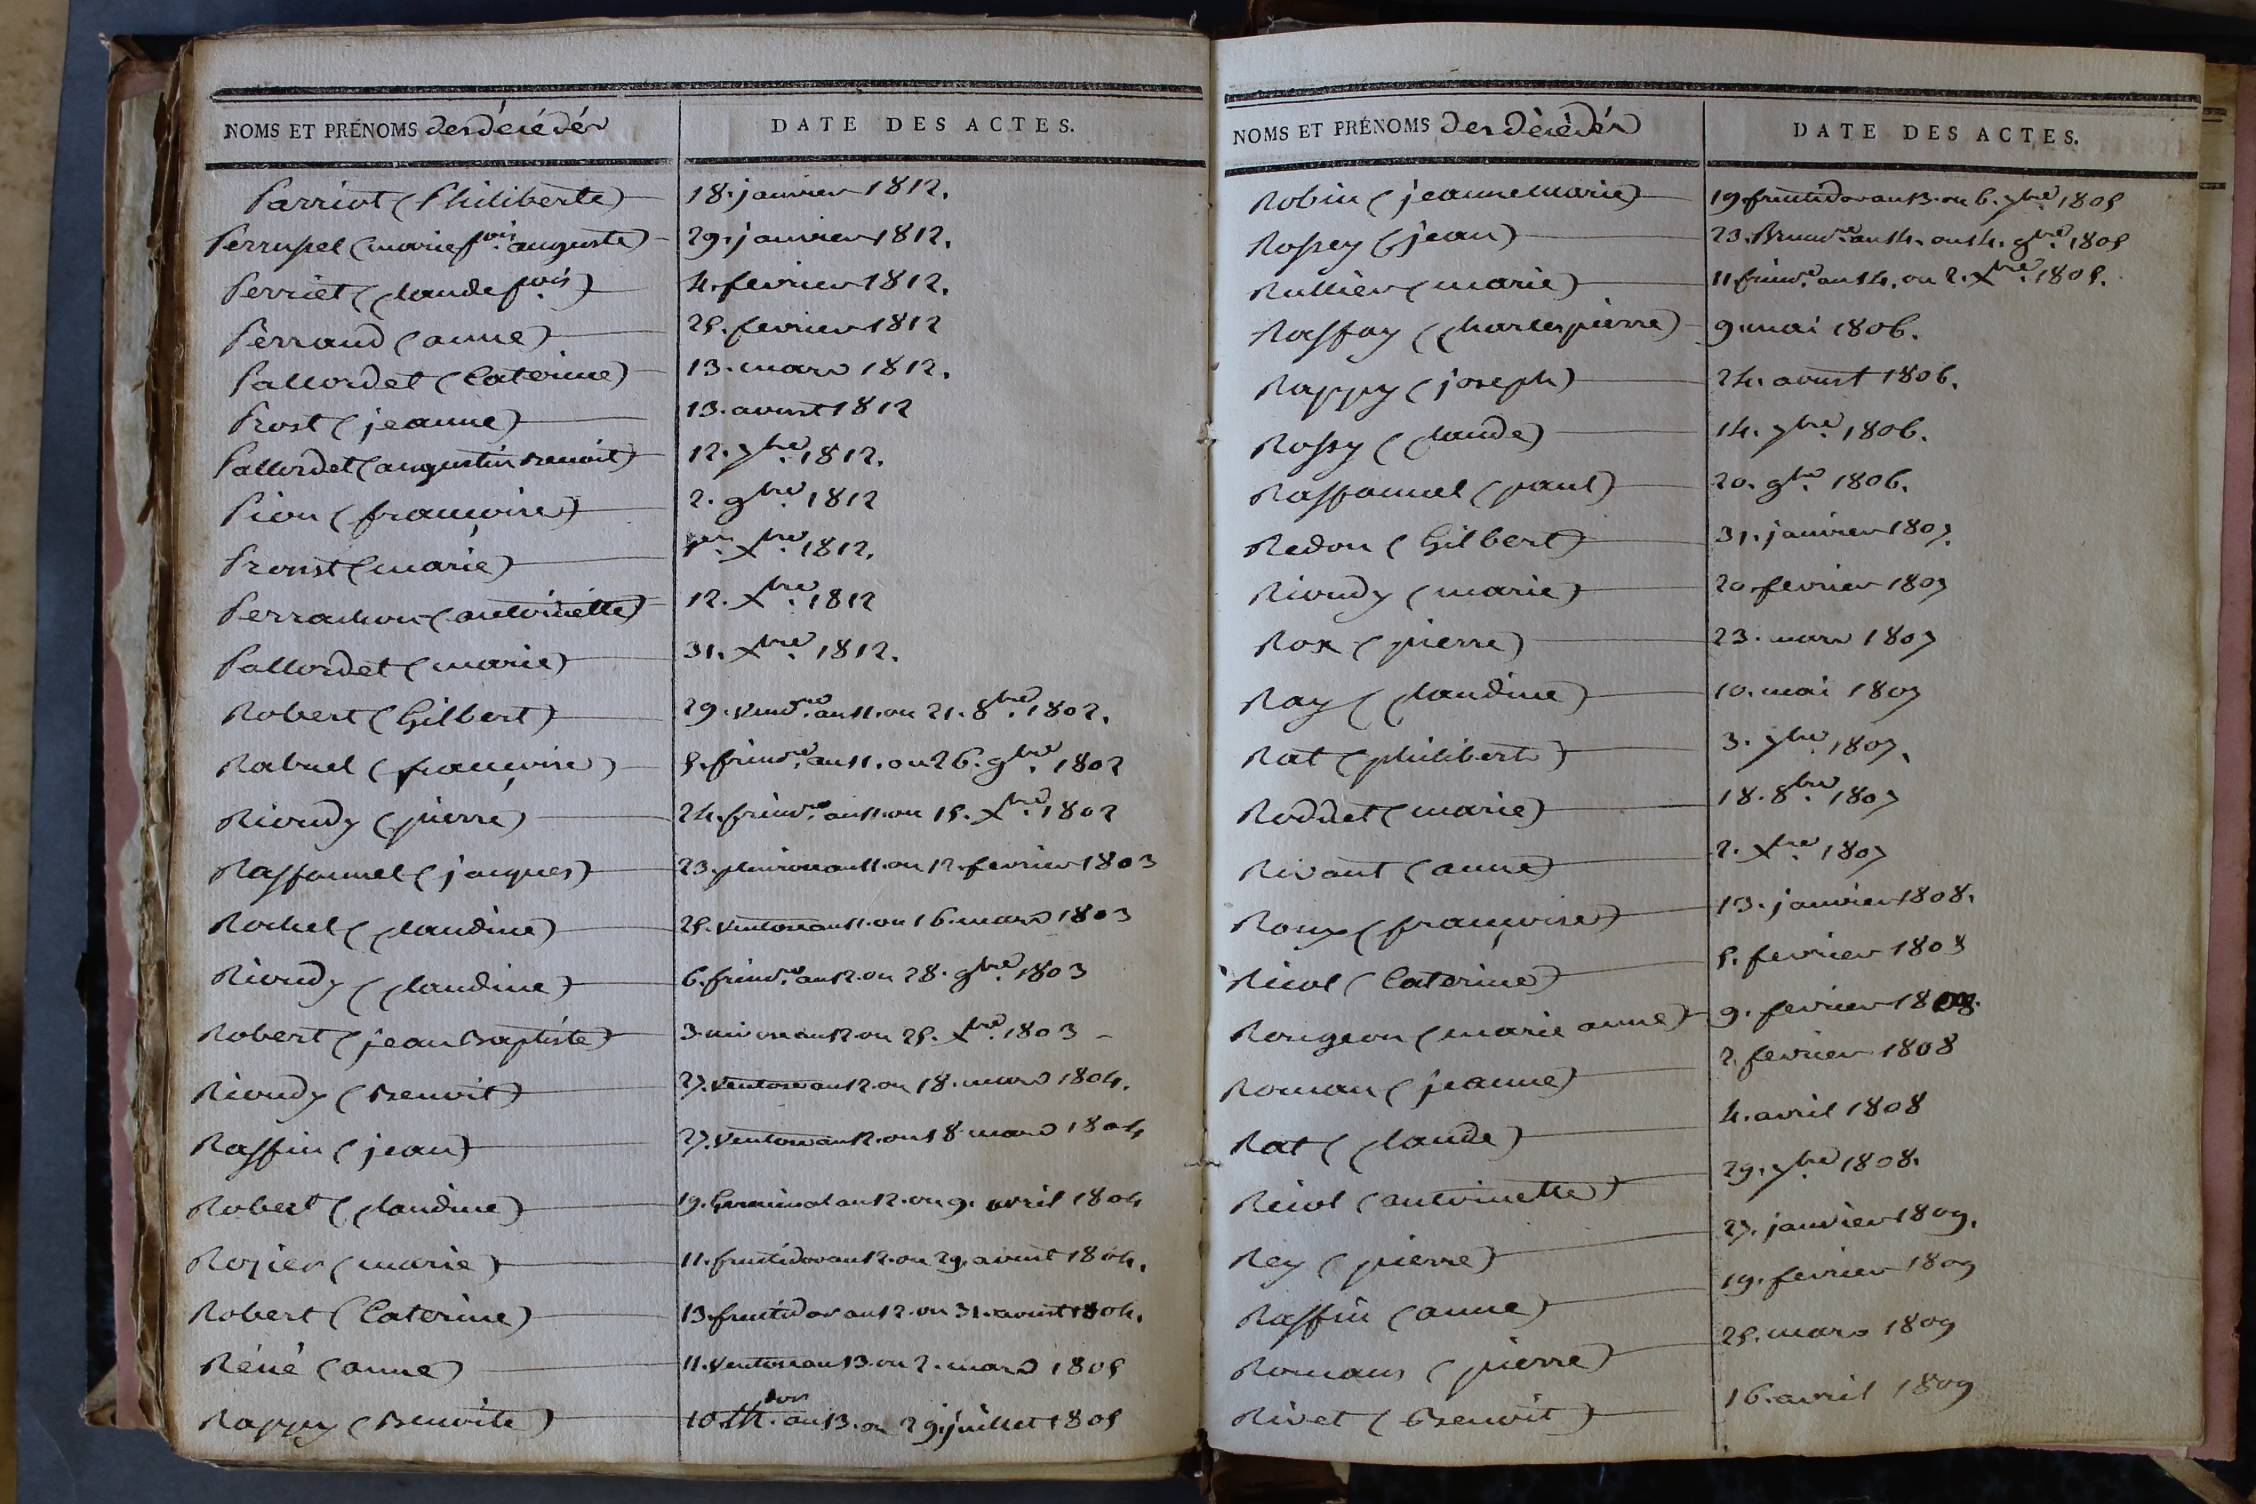 NOMS ET PRÉNOMS des décédés DATE DES ACTES.
Parriot (Philiberte) 18. janvier 1812.
Perrusel (marie fois auguste) 29. janvier 1812.
Perriet (claude fois) 4. fevrier 1812.
Perraud (anne) 25. fevrier 1812
Pallordet (Caterine) 13. mars 1812.
Prost (jeanne) 13. avoust 1812
Pallordet (augustin Benoit) 12. 7bre. 1812.
Pion (françoise) 2. 9bre. 1812
Proust (marie) 1er. Xbre. 1812.
Perrachon (antoinette) 12. Xbre. 1812
Pallordet (marie) 31. Xbre. 1812.
Robert (Gilbert) 29. Vendre. an 11. ou 21. 8bre. 1802.
Rabuel (françoise) 5. frimre. an 11. ou 26. 9bre. 1802
Rioudy (pierre) 24. frimre. an 11. ou 15. Xbre. 1802
Raffournel (jacques) 23. pluviose an 11. ou 12. fevrier 1803
Rochel (claudine) 25. Ventose an 11. ou 16. mars 1803
Rioudy (claudine) 6. frimre. an 12. ou 28. 9bre. 1803
Robert (jean Baptiste) 3. nivose an 12. ou 25. Xbre. 1803
Rioudy (Benoit) 27. Ventose an 12. ou 18. mars 1804.
Raffin (jean) 27. Ventose an 12. ou 18. mars 1804
Robert (claudine) 19. Germinal an 12. ou 9. avril 1804
Rozier (marie) 11. fructidor an 12. ou 29. avoust 1804.
Robert (Caterine) 13. fructidor an 12. ou 31. avoust 1804.
Réné (anne) 11. Ventose an 13. ou 2. mars 1805
Rappy (Benoite) 10. th.dor an 13. ou 29. juillet 1805
NOMS ET PRÉNOMS des Décédés DATE DES ACTES.
Robin (jeanne marie) 19. fructidor an 13. ou 6. 7bre. 1805
Rossey (jean) 23. Brumre. an 14. ou 14. 9bre. 1805
Rullier (marie) 11. frimre. an 14. ou 2. Xbre. 1805.
Raffay (charles pierre) 9. mai 1806.
Rappy (joseph) 24. avoust 1806.
Rossy (claude) 14. 7bre. 1806.
Raffournel (paul) 20. 9bre. 1806.
Redon (Gilbert) 31. janvier 1807.
Rioudy (marie) 20. fevrier 1807
Rox (pierre) 23. mars 1807
Ray (claudine) 10. mai 1807
Rat (philibert) 3. 7bre. 1807.
Roddet (marie) 18. 8bre. 1807
Rivaut (anne) 2. Xbre. 1807
Roux (françoise) 13. janvier 1808.
Ricol (Caterine) 5. fevrier 1808
Rougeon (marie anne) 9. fevrier 1808.
Roman (jeanne) 2. fevrier 1808
Rat (claude) 4. avril 1808
Ricol (antoinette) 29. 7bre. 1808.
Rey (pierre) 27. janvier 1809.
Raffin (anne) 19. fevrier 1809
Romans (pierre) 25. mars 1809
Rivet (Benoit) 16. avril 1809